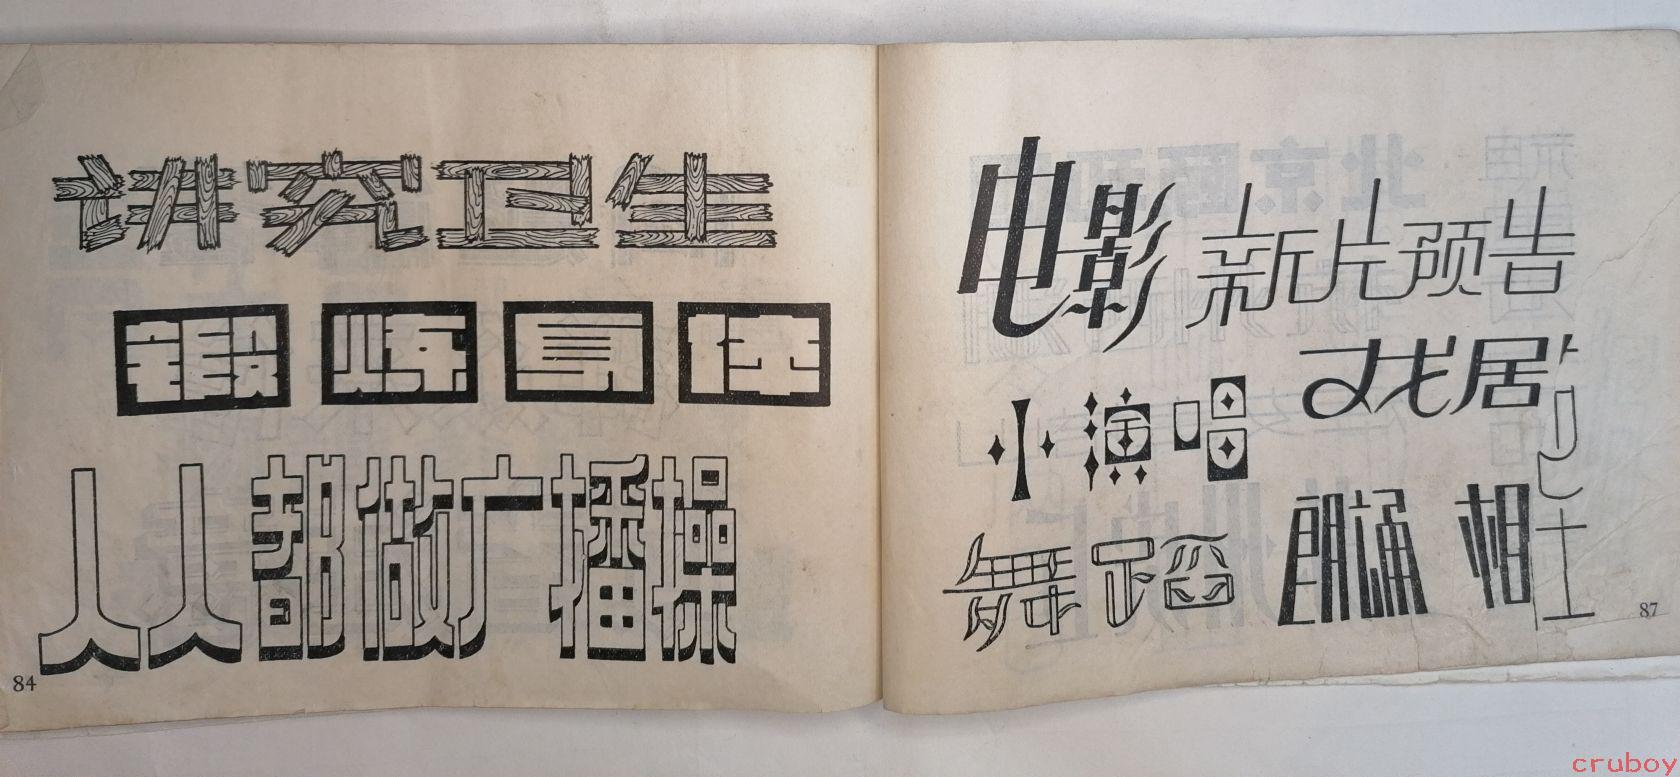 讲究卫生
锻炼身体
人人都做广播操
84
电影新片预告
戏剧
小演唱
舞蹈 朗诵 相声
87
cruboy